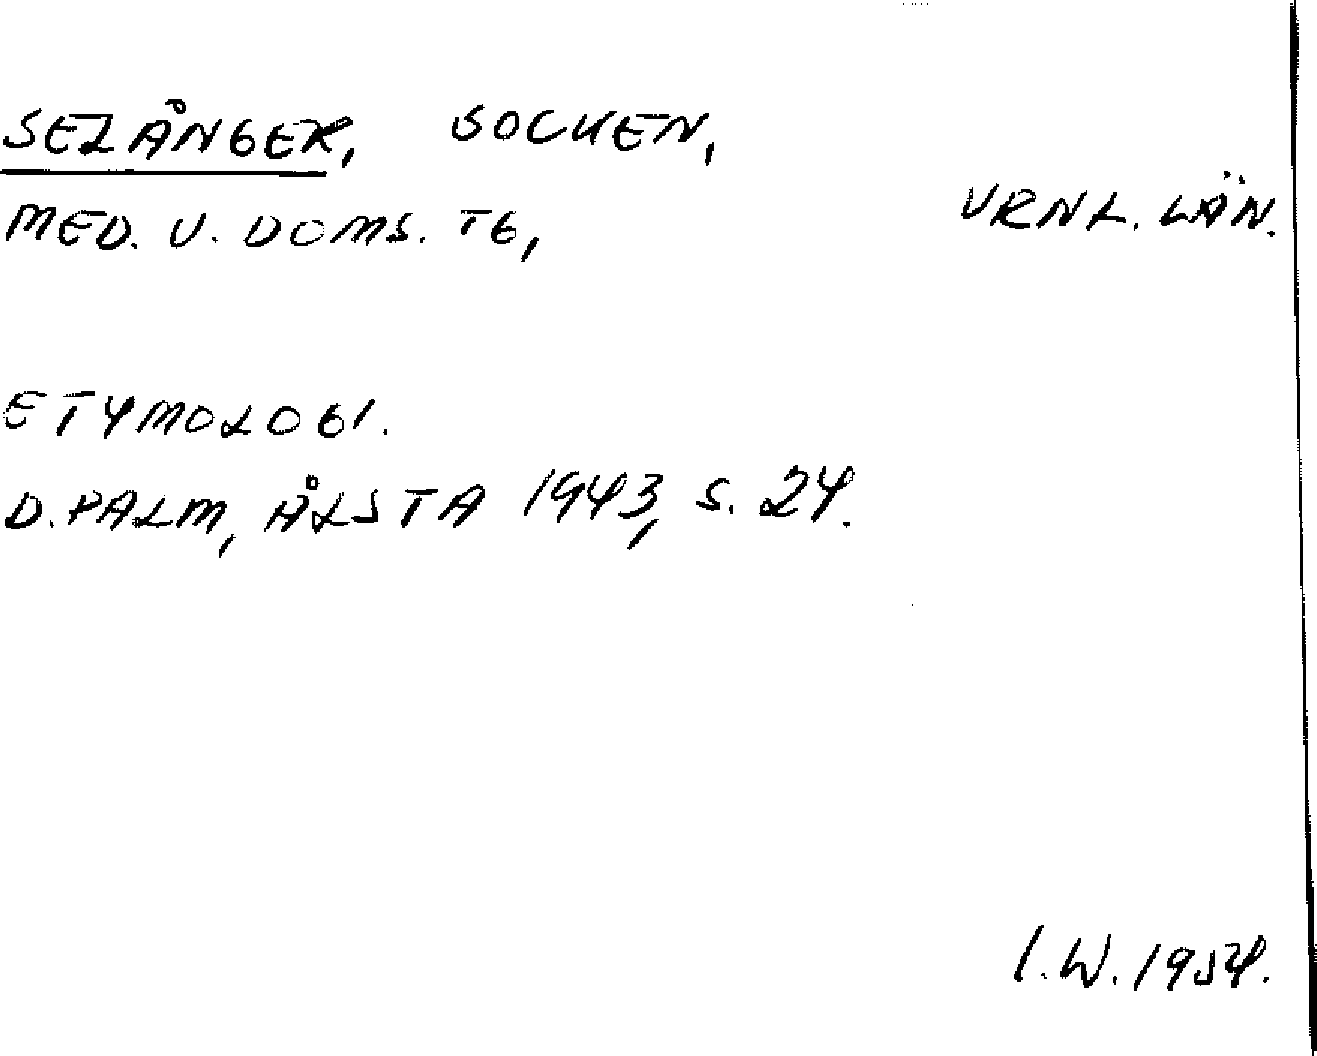 SELÅNGER, SOCKEN,
MED. V. DOMS. TG, VRNL. LÄN.
ETYMOLOGI.
D. PALM, ÅLSTA 1943, S. 24.
I.W. 1954.